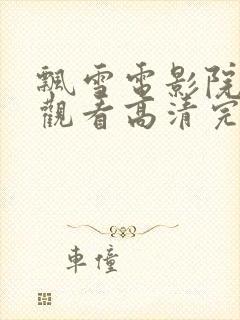 飄雪電影院
觀看高清完
車懂